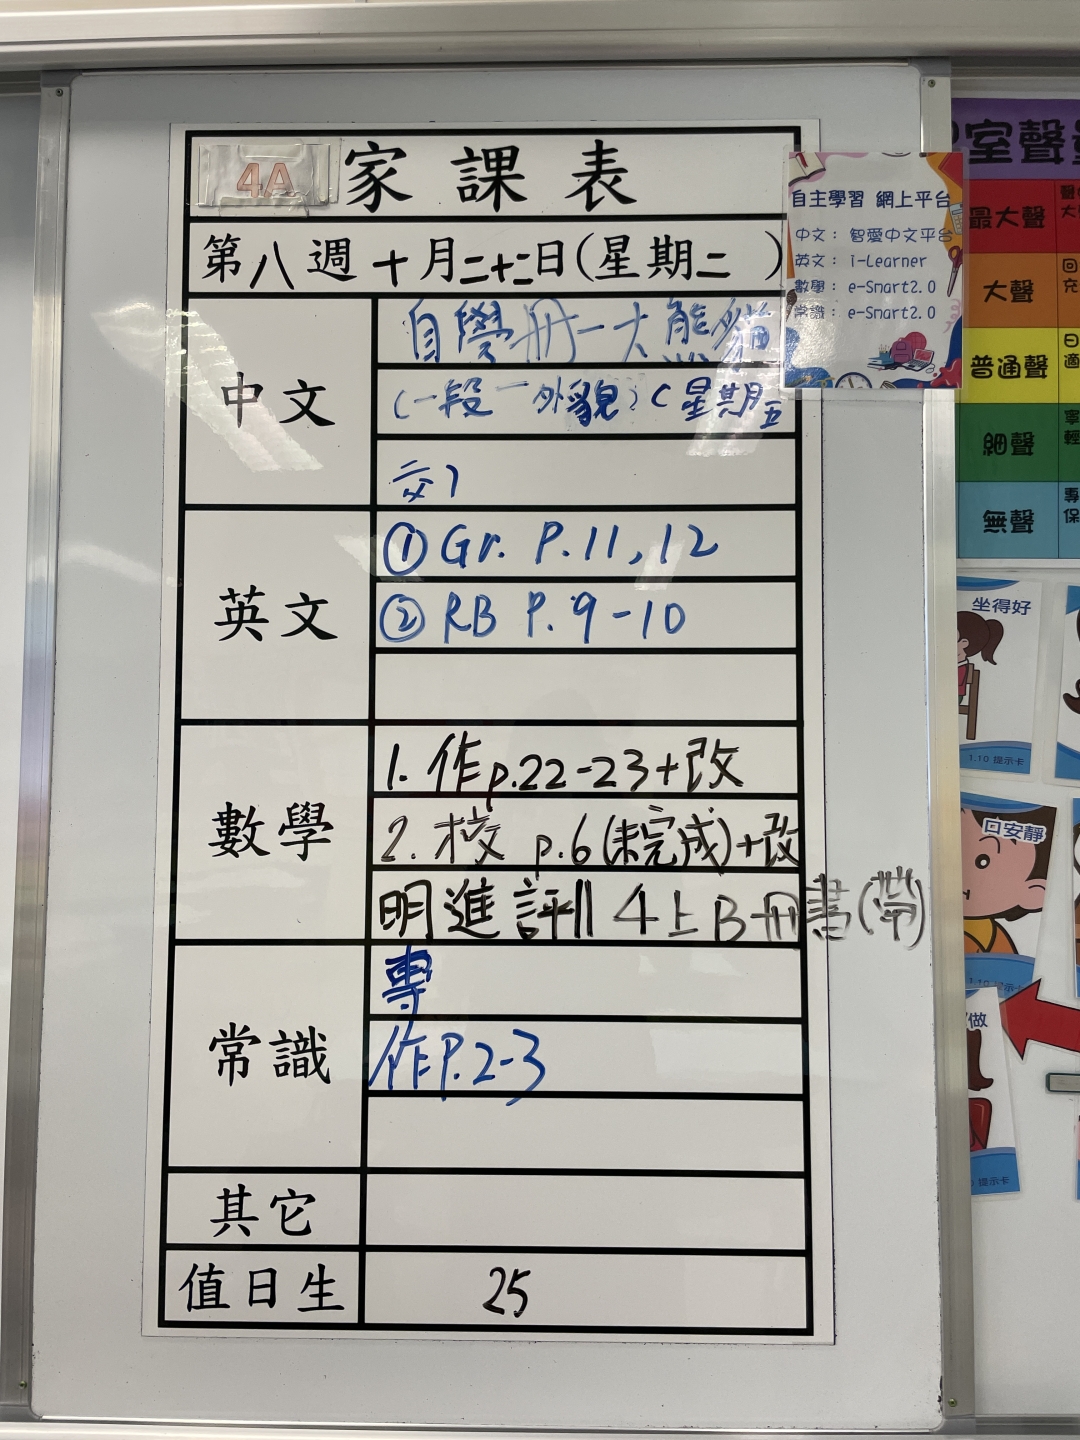 4A 家課表
第八週十月二十二日(星期二)
中文
自學冊一大熊貓
(一段一外貌)(星期五
交)
英文
① Gr. P.11,12
② RB P.9-10
數學
1. 作p.22-23+改
2. 校 p.6(未完成)+改
明進評 4上B冊書(帶)
常識
專
作P.2-3
其它
值日生
25
自主學習 網上平台
中文： 智愛中文平台
英文： i-Learner
數學： e-Smart2.0
常識： e-Smart2.0
室聲
最大聲
大聲
普通聲
細聲
無聲
坐得好
1.10 提示卡
口安靜
做
提示卡